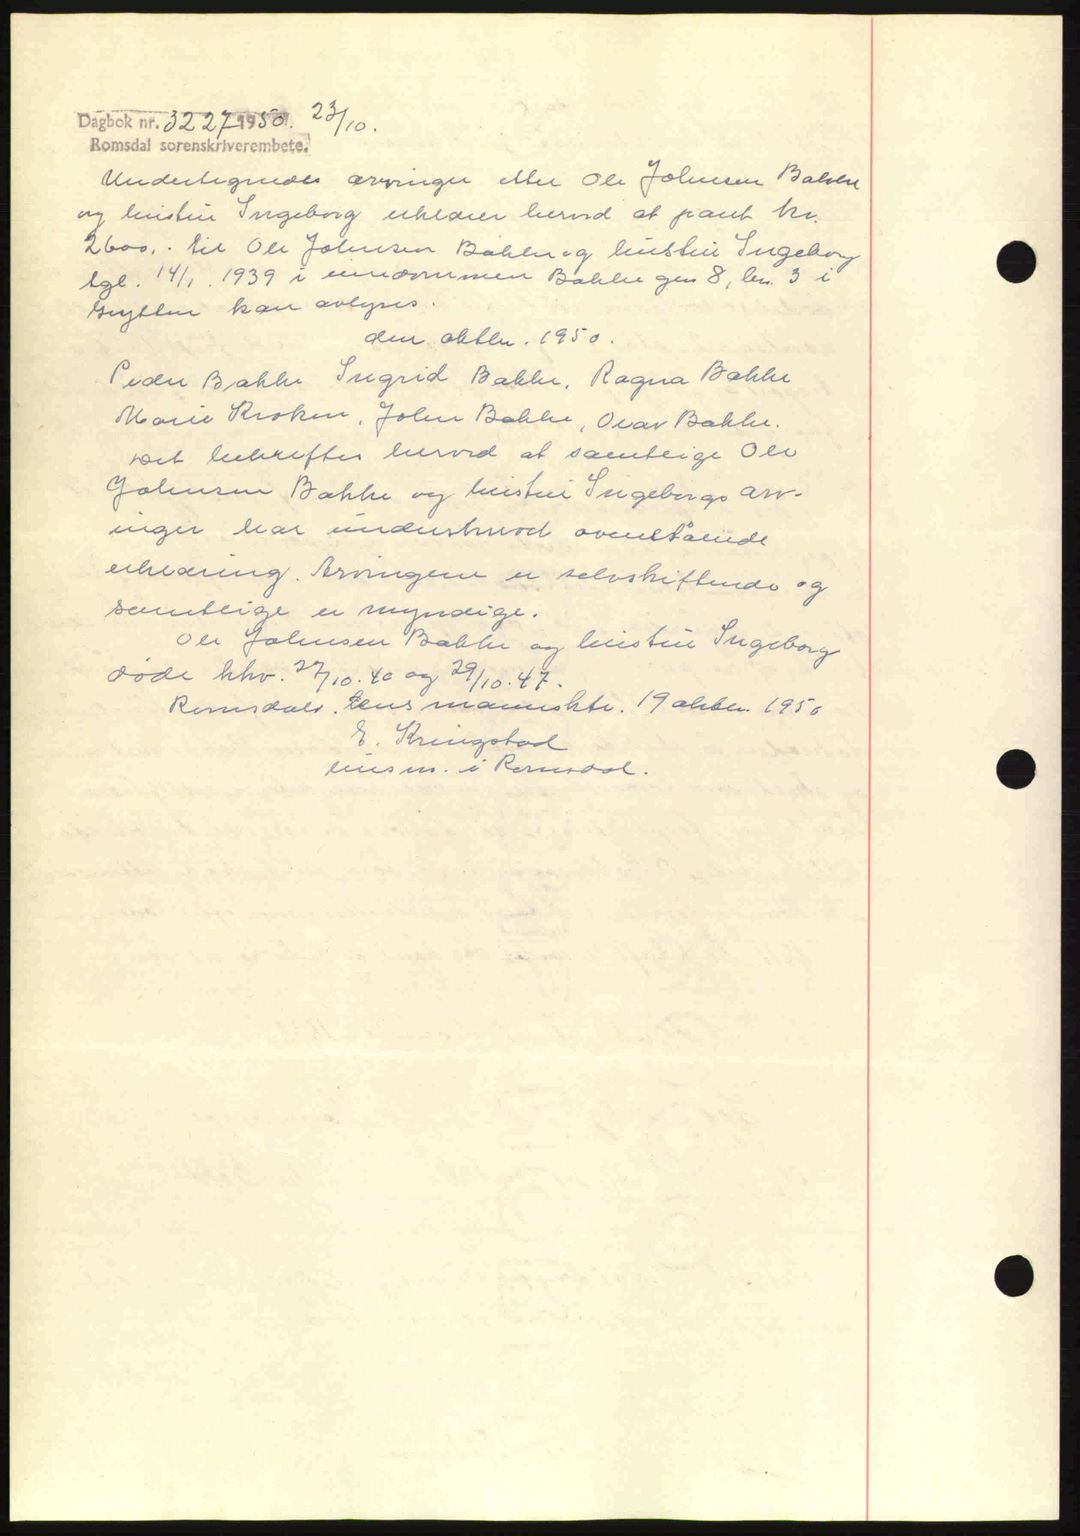 Dagbok nr. 3227 1950. 23/10.
Romsdal sorenskriverembete.
Undertegnede arvinger etter Ole Johnsen Bakke
og hustru Ingeborg erklærer herved at pant kr.
2600,- til Ole Johnsen Bakke og hustru Ingeborg
tgl. 14/1. 1939 i eiendommen Bakke gnr 8, bn. 3 i
Grytten kan avlyses.
den oktbr. 1950.
Peder Bakke Ingrid Bakke, Ragna Bakke
Marie Kroken, John Bakke, Olav Bakke.
Det bekreftes herved at samtlige Ole
Johnsen Bakke og hustru Ingeborgs arv-
inger har underskrevet ovenstående
erklæring. Arvingene er selvskiftende og
samtlige er myndige.
Ole Johnsen Bakke og hustru Ingeborg
døde hhv. 27/10.40 og 29/10.47.
Romsdals lensmannsktr. 19 oktbr. 1950
E. Kringstad
lensm. i Romsdal.